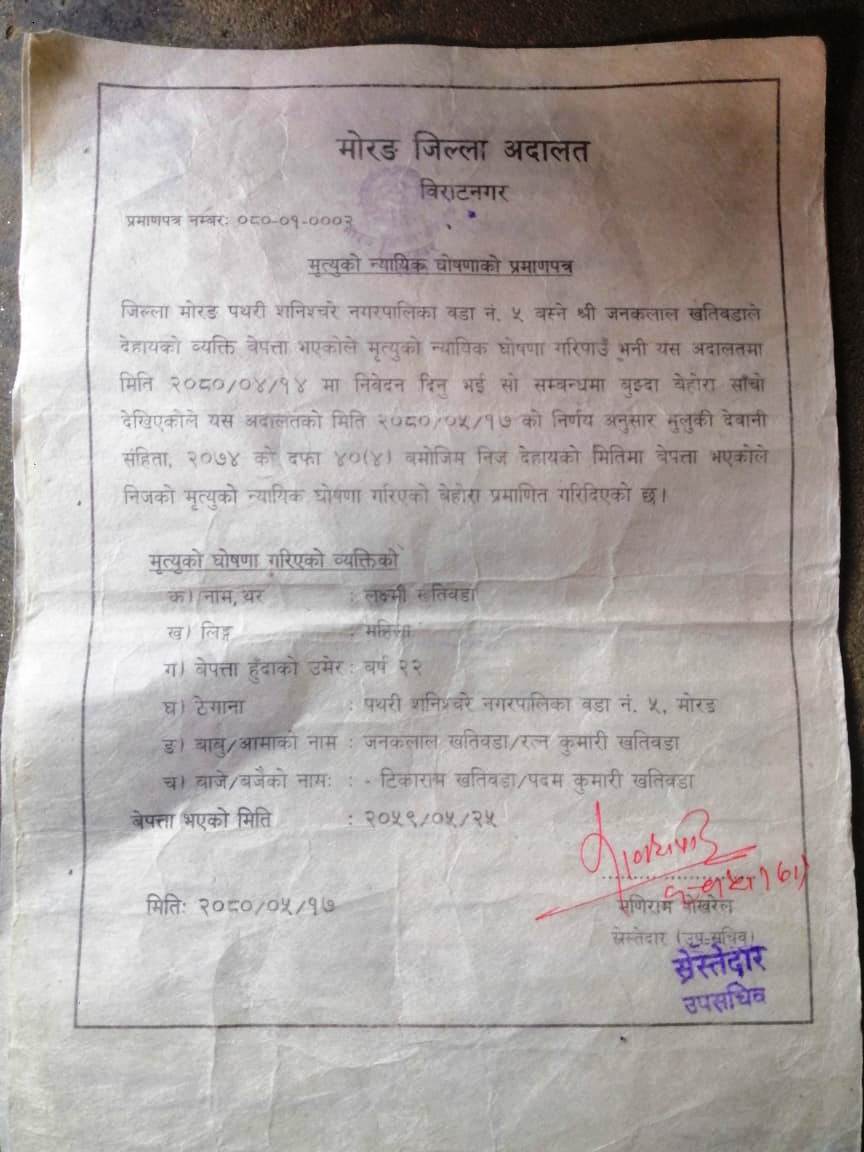 मोरङ जिल्ला अदालत
विराटनगर
प्रमाणपत्र नम्बर: ०८०-०१-०००२
मृत्युको न्यायिक घोषणाको प्रमाणपत्र
जिल्ला मोरङ पथरी शनिश्चरे नगरपालिका वडा नं. ५ बस्ने श्री जनकलाल खतिवडाले
देहायको व्यक्ति बेपत्ता भएकोले मृत्युको न्यायिक घोषणा गरिपाउँ भनी यस अदालतमा
मिति २०८०/०४/१४ मा निवेदन दिनु भई सो सम्बन्धमा बुझ्दा बेहोरा साँचो
देखिएकोले यस अदालतको मिति २०८०/०५/१७ को निर्णय अनुसार मुलुकी देवानी
संहिता, २०७४ को दफा ४०(४) बमोजिम निज देहायको मितिमा बेपत्ता भएकोले
निजको मृत्युको न्यायिक घोषणा गरिएको बेहोरा प्रमाणित गरिदिएको छ।
मृत्युको घोषणा गरिएको व्यक्तिको
क) नाम, थर : लक्ष्मी खतिवडा
ख) लिङ्ग : महिला
ग) बेपत्ता हुँदाको उमेर : वर्ष २२
घ) ठेगाना : पथरी शनिश्चरे नगरपालिका वडा नं. ५, मोरङ
ङ) बाबु/आमाको नाम : जनकलाल खतिवडा/रत्न कुमारी खतिवडा
च) बाजे/बजैको नामः : - टिकाराम खतिवडा/पदम कुमारी खतिवडा
बेपत्ता भएको मिति : २०५९/०५/२५
मितिः २०८०/०५/१७
मणिराम पोखरेल
स्रेस्तेदार (उप-सचिव)
स्रेस्तेदार
उपसचिव